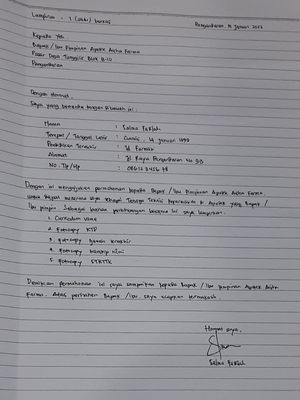 Lampiran : 1 (satu) berkas
Pangandaran, 11 Januari 2022
Kepada Yth.
Bapak / Ibu Pimpinan Apotek Aisha Farma
Pasar Desa Tunggilis Blok B-10
Pangandaran
Dengan Hormat,
Saya yang bertanda tangan dibawah ini :
Nama : Salma
Tempat / Tanggal Lahir : Ciamis, 14 Januari
Pendidikan Terakhir : Farmasi
Alamat : Jl. Raya Pangandaran No
No. Tlp / Hp :
Dengan ini mengajukan permohonan kepada Bapak / Ibu Pimpinan Apotek Aisha Farma,
untuk dapat Tenaga Teknis Kefarmasian di Apotek yang Bapak /
Ibu pimpin. Sebagai bahan pertimbangan bersama ini saya lampirkan :
1. Curriculum Vitae
2. Fotocopy KTP
3. Fotocopy Ijazah terakhir
4. Fotocopy transkip nilai
5. Fotocopy STRTTK
Demikian permohonan ini saya sampaikan kepada Bapak / Ibu Pimpinan Apotek Aisha
Farma. Atas perhatian Bapak / Ibu, saya ucapkan terimakasih.
Hormat saya,
Salma